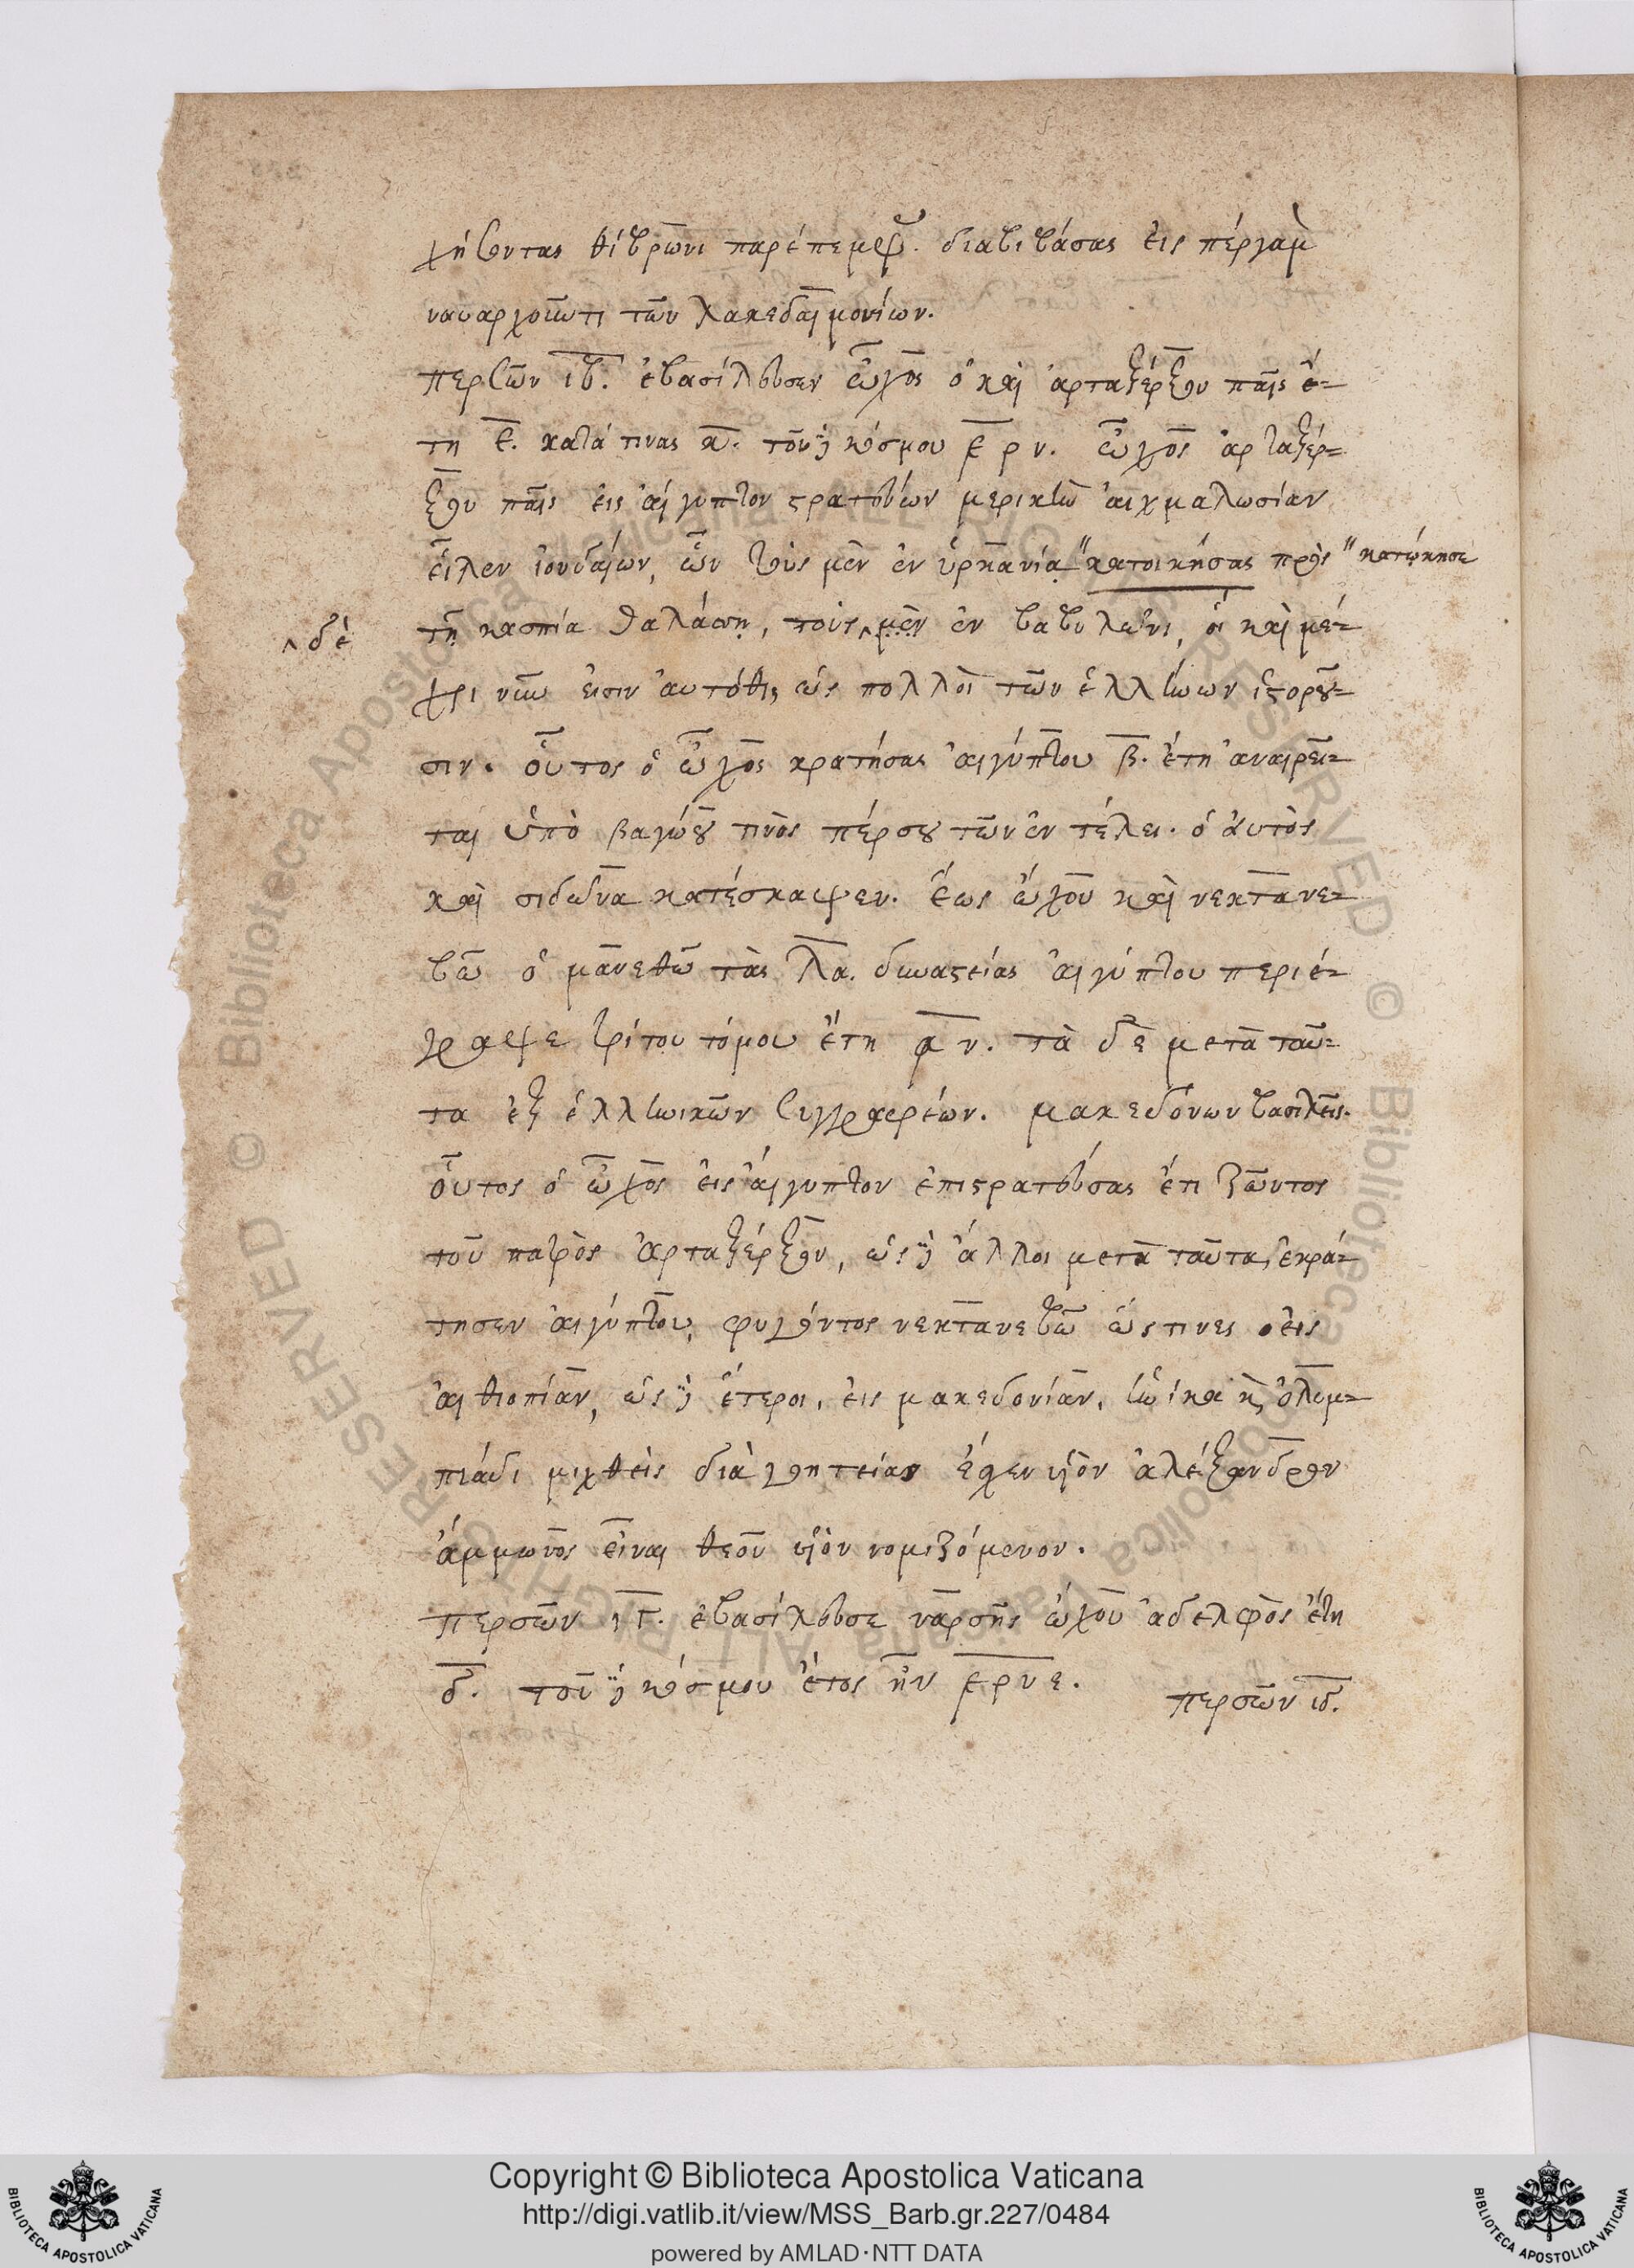 χήσοντας θίβρωνι παρέπεμψ. διαβιβάσας εἰς πέργαμ
ναυαρχοῦντι τῶν λακεδαιμονίων.
περσῶν ιβ. ἐβασίλευσεν ὦχος ὁ καὶ ἀρταξέρξου παῖς ἔ-
τη ε. κατά τινας δ. τοῦ κόσμου ͵ερν. ὦχος ἀρταξέρ-
ξου παῖς εἰς αἴγυπτον στρατεύων μερικὴν αἰχμαλωσίαν
εἷλεν ἰουδαίων, ὧν τοὺς μὲν ἐν ὑρκανίᾳ "κατοικήσας πρὸς "κατῴκησε
τῇ κασπίᾳ θαλάσσῃ, τοὺς ‸μὲν ἐν βαβυλῶνι, οἳ καὶ μέ-
‸ δὲ
χρι νῦν εἰσιν αὐτόθι, ὡς πολλοὶ τῶν ἑλλήνων ἱστοροῦ-
σιν. οὗτος ὁ ὦχος κρατήσας αἰγύπτου β. ἔτη ἀναιρεῖ-
ται ὑπὸ βαγώου τινὸς πέρσου τῶν ἐν τέλει. ὁ αὐτὸς
καὶ σιδῶνα κατέσκαψεν. ἕως ὤχου καὶ νεκτανε-
βῶ ὁ μανεθῶ τὰς λα. δυναστείας αἰγύπτου περιέ-
γραψε τρίτου τόμου ἔτη ͵αν. τὰ δὲ μετὰ ταῦ-
τα ἐξ ἑλληνικῶν συγγραφέων. μακεδόνων βασιλεῖς.
οὗτος ὁ ὦχος εἰς αἴγυπτον ἐπιστρατεύσας ἔτι ζῶντος
τοῦ πατρὸς ἀρταξέρξου, ὡς ἄλλοι μετὰ ταῦτα, ἐκρά-
τησεν αἰγύπτου, φυγόντος νεκτανεβῶ ὥς τινες εἰς
αἰθιοπίαν, ὡς ἕτεροι, εἰς μακεδονίαν, ἡνίκα κ ὀλυμ-
πιάδι μιχθεὶς διὰ γοητείας ἔσχεν υἱὸν ἀλέξανδρον
ἄμμωνος εἶναι θεοῦ υἱὸν νομιζόμενον.
περσῶν ιγ. ἐβασίλευσε ναρσῆς ὤχου ἀδελφὸς ἔτη
δ. τοῦ κόσμου ἔτος ἦν ͵ερνε. περσῶν ιδ.
Copyright © Biblioteca Apostolica Vaticana
http://digi.vatlib.it/view/MSS_Barb.gr.227/0484
powered by AMLAD·NTT DATA